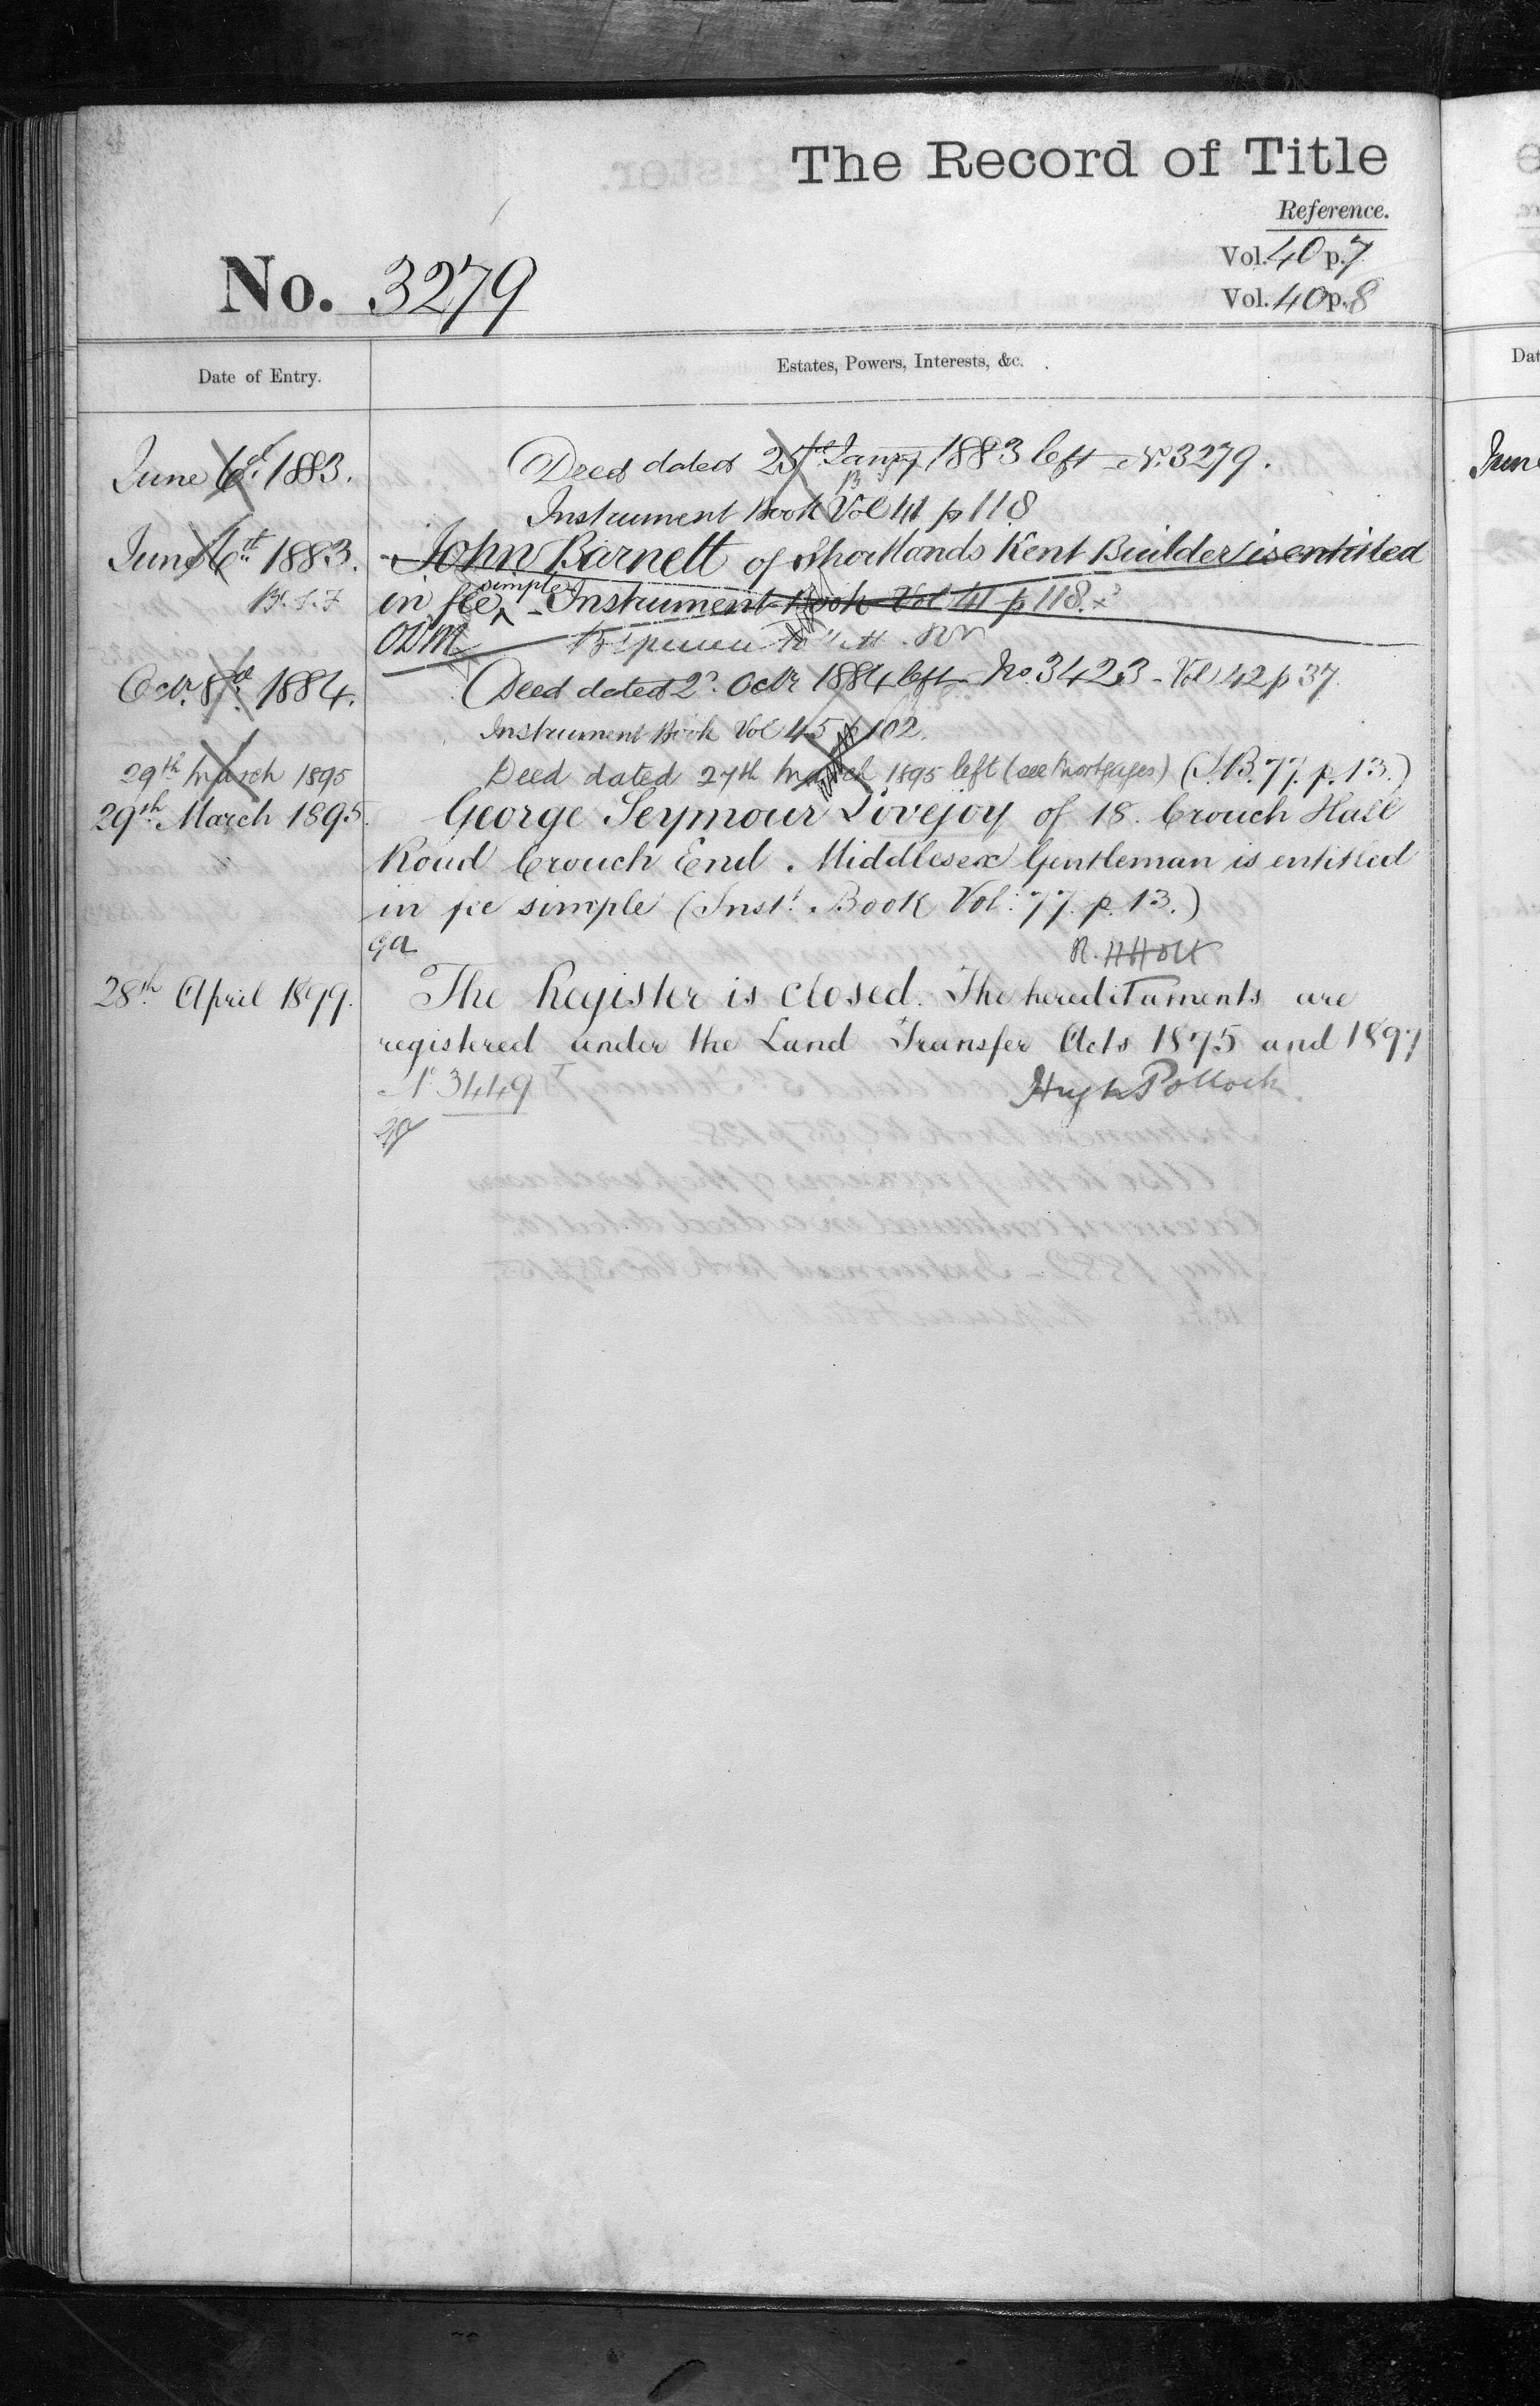 The Record of Title
Reference.
Vol. 40 p. 7
Vol. 40 p. 8
No. 3279
Date of Entry.
Estates, Powers, Interests, &c.
June 6th 1883.
Deed dated 25th Jany 1883 left No. 3279.
Instrument Book Vol 41 p 118
June 6th 1883.
John Barnett of Shortlands Kent Builder is entitled
in fee simple - Instrument Book Vol 41 p 118.
Octr. 8th 1884.
Deed dated 2d. Octr 1884 left No. 3423 - Vol 42 p 37.
Instrument Book Vol 45 p 102.
29th March 1895
Deed dated 27th March 1895 left (see Mortgages) (I.B. 77. p. 13.)
29th March 1895.
George Seymour Lovejoy of 18. Crouch Hall
Road Crouch End Middlesex Gentleman is entitled
in fee simple (Inst. Book Vol. 77. p. 13.)
R. H Holt
28th April 1899.
The Register is closed. The hereditaments are
registered under the Land Transfer Acts 1875 and 1897
No. 3449
Hugh Pollock
Dat
June